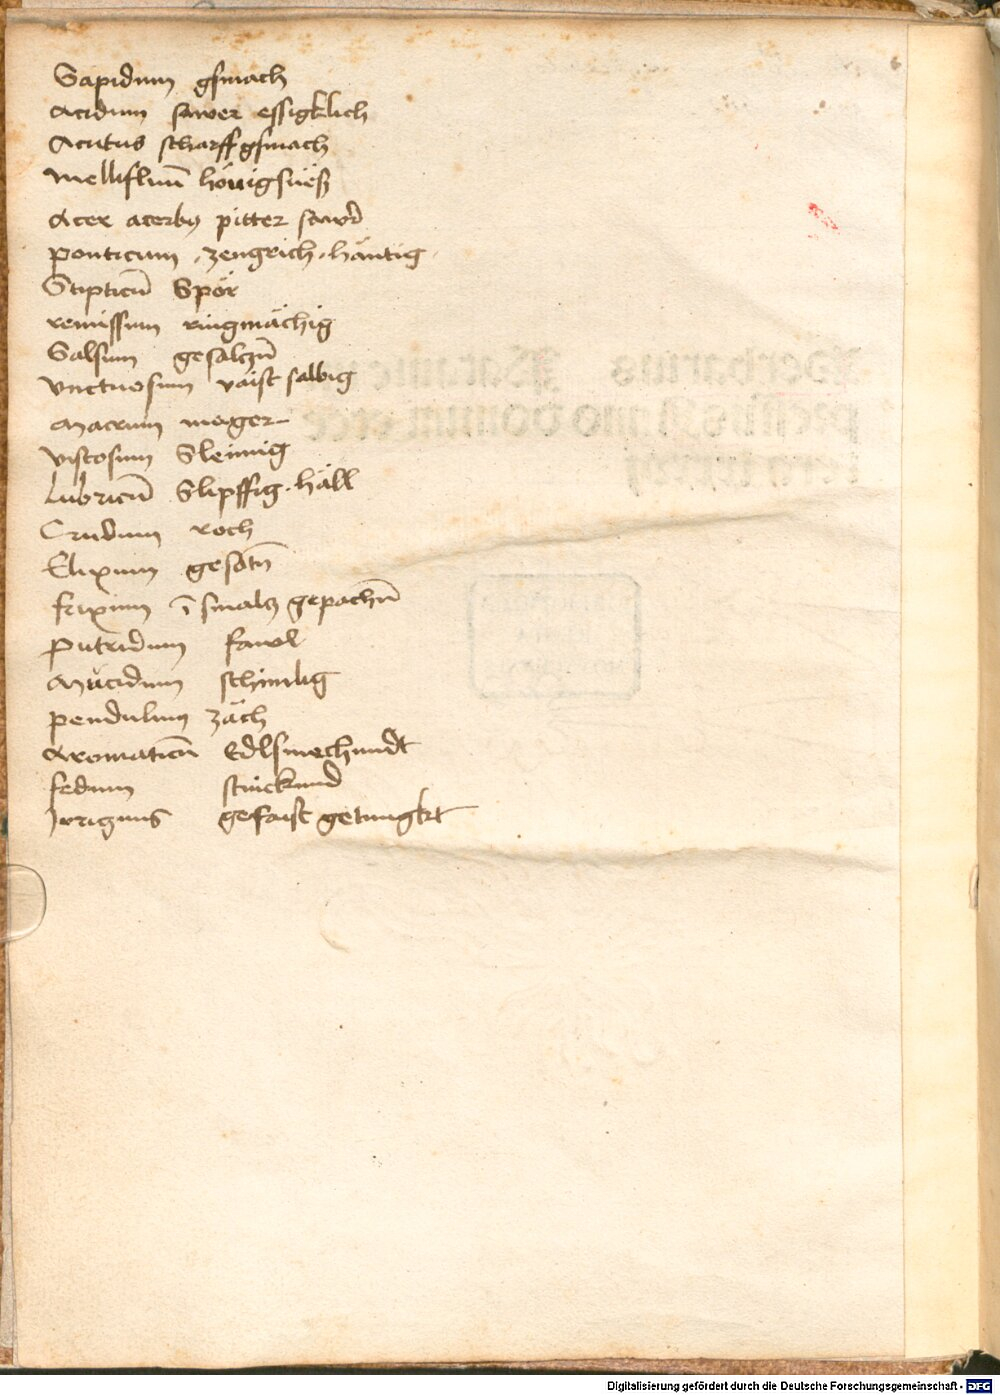 Sapidum gsmach
Acidum sawer essigklich
Acutus scharff gsmach
Mellifluū hönigsües
Acer acerbus pitter sawr
Ponticum . zengrich . hantig
Stipticū Spör
remissum ringmächig
Salsum gesalczn̄
Vnctuosum vaist salbig
Macrum mager
Viscosum Sleimig
Lubricū Slipffig . häll
Crudum roch
Elixum gesotn̄
frixum ī smalcz gepachn̄
Putridum fawl
Mucidum schimlig
pendulum zäch
Aromaticū Edlsmechundt
fedum stinckund
gefaist getungkt
Digitalisierung gefördert durch die Deutsche Forschungsgemeinschaft - DFG